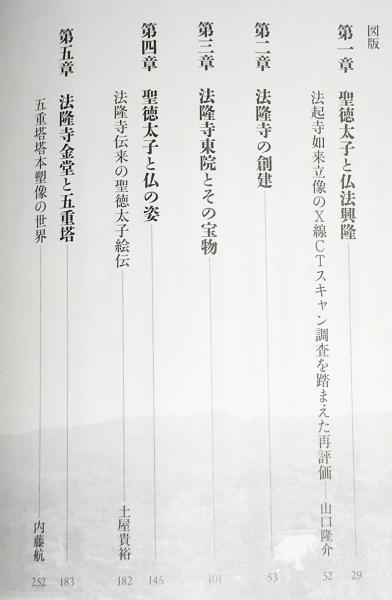 図版
第一章 聖徳太子と仏法興隆 29
法起寺如来立像のX線CTスキャン調査を踏まえた再評価 山口隆介 52
第二章 法隆寺の創建 53
第三章 法隆寺東院とその宝物 101
第四章 聖徳太子と仏の姿 145
法隆寺伝来の聖徳太子絵伝 土屋貴裕 182
第五章 法隆寺金堂と五重塔 183
五重塔塔本塑像の世界 内藤航 252